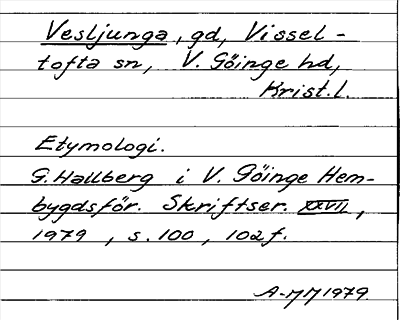 Vesljunga, gd, Vissel-
tofta sn, V. Göinge hd,
Krist.l.
Etymologi.
G. Hallberg i V. Göinge Hem-
bygdsför. Skriftser. XXVII,
1979, s. 100, 102f.
A-MM 1979.